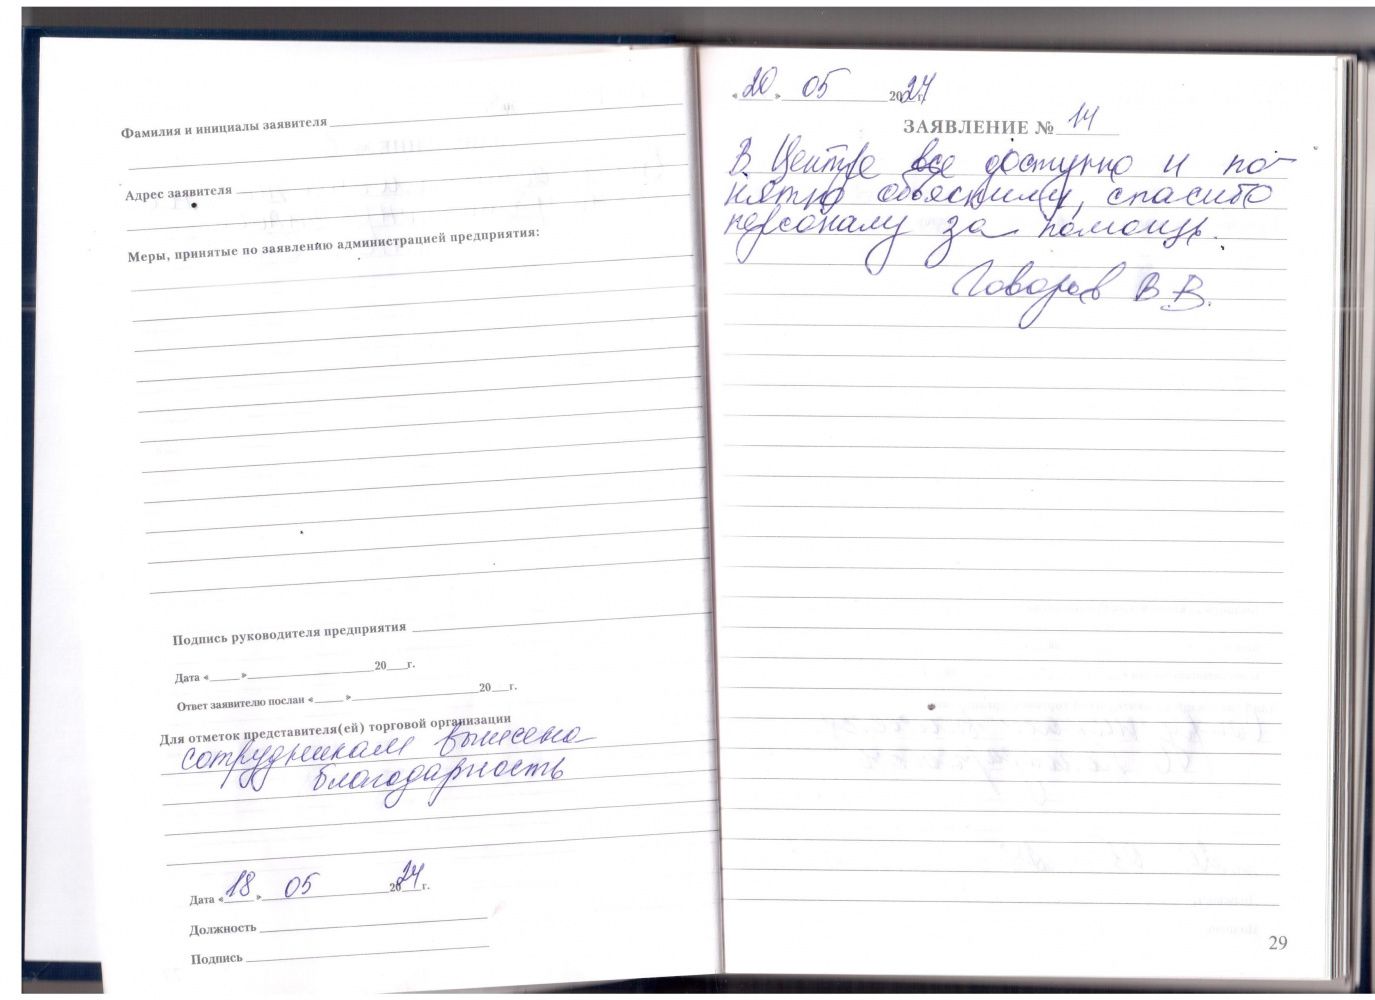 Фамилия и инициалы заявителя
Адрес заявителя
Меры, принятые по заявлению администрацией предприятия:
Подпись руководителя предприятия
Дата «____»____________20___г.
Ответ заявителю послан «____»____________20___г.
Для отметок представителя(ей) торговой организации
сотрудникам вынесена
благодарность
Дата «18» 05 2024 г.
Должность
Подпись
«20» 05 2024 г.
ЗАЯВЛЕНИЕ № 14
В Центре все доступно и по-
нятно объяснили, спасибо
персоналу за помощь.
Говоров В.В.
29